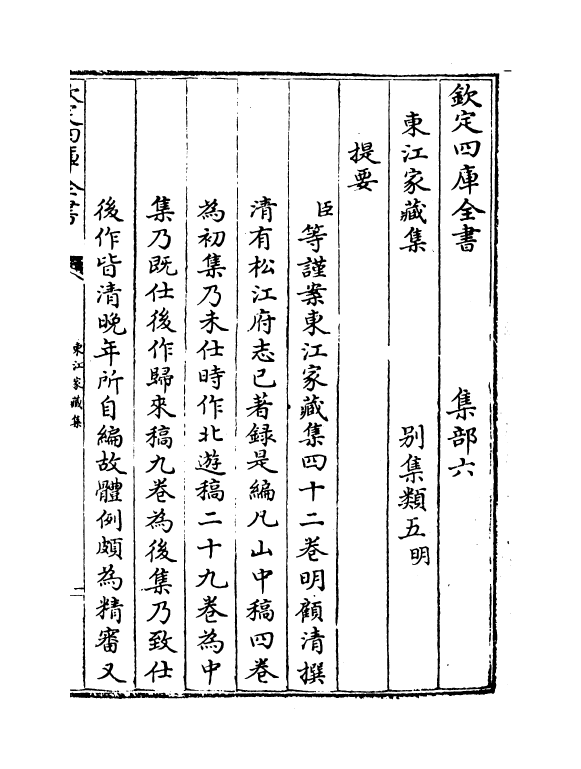 欽定四庫全書　集部六
東江家藏集　別集類五明
提要
臣等謹案東江家藏集四十二卷明顧清撰
清有松江府志已著録是編凡山中稿四卷
為初集乃未仕時作北遊稿二十九卷為中
集乃既仕後作歸來稿九卷為後集乃致仕
後作皆清晚年所自編故體例頗為精審又
欽定四庫全書　東江家藏集　一